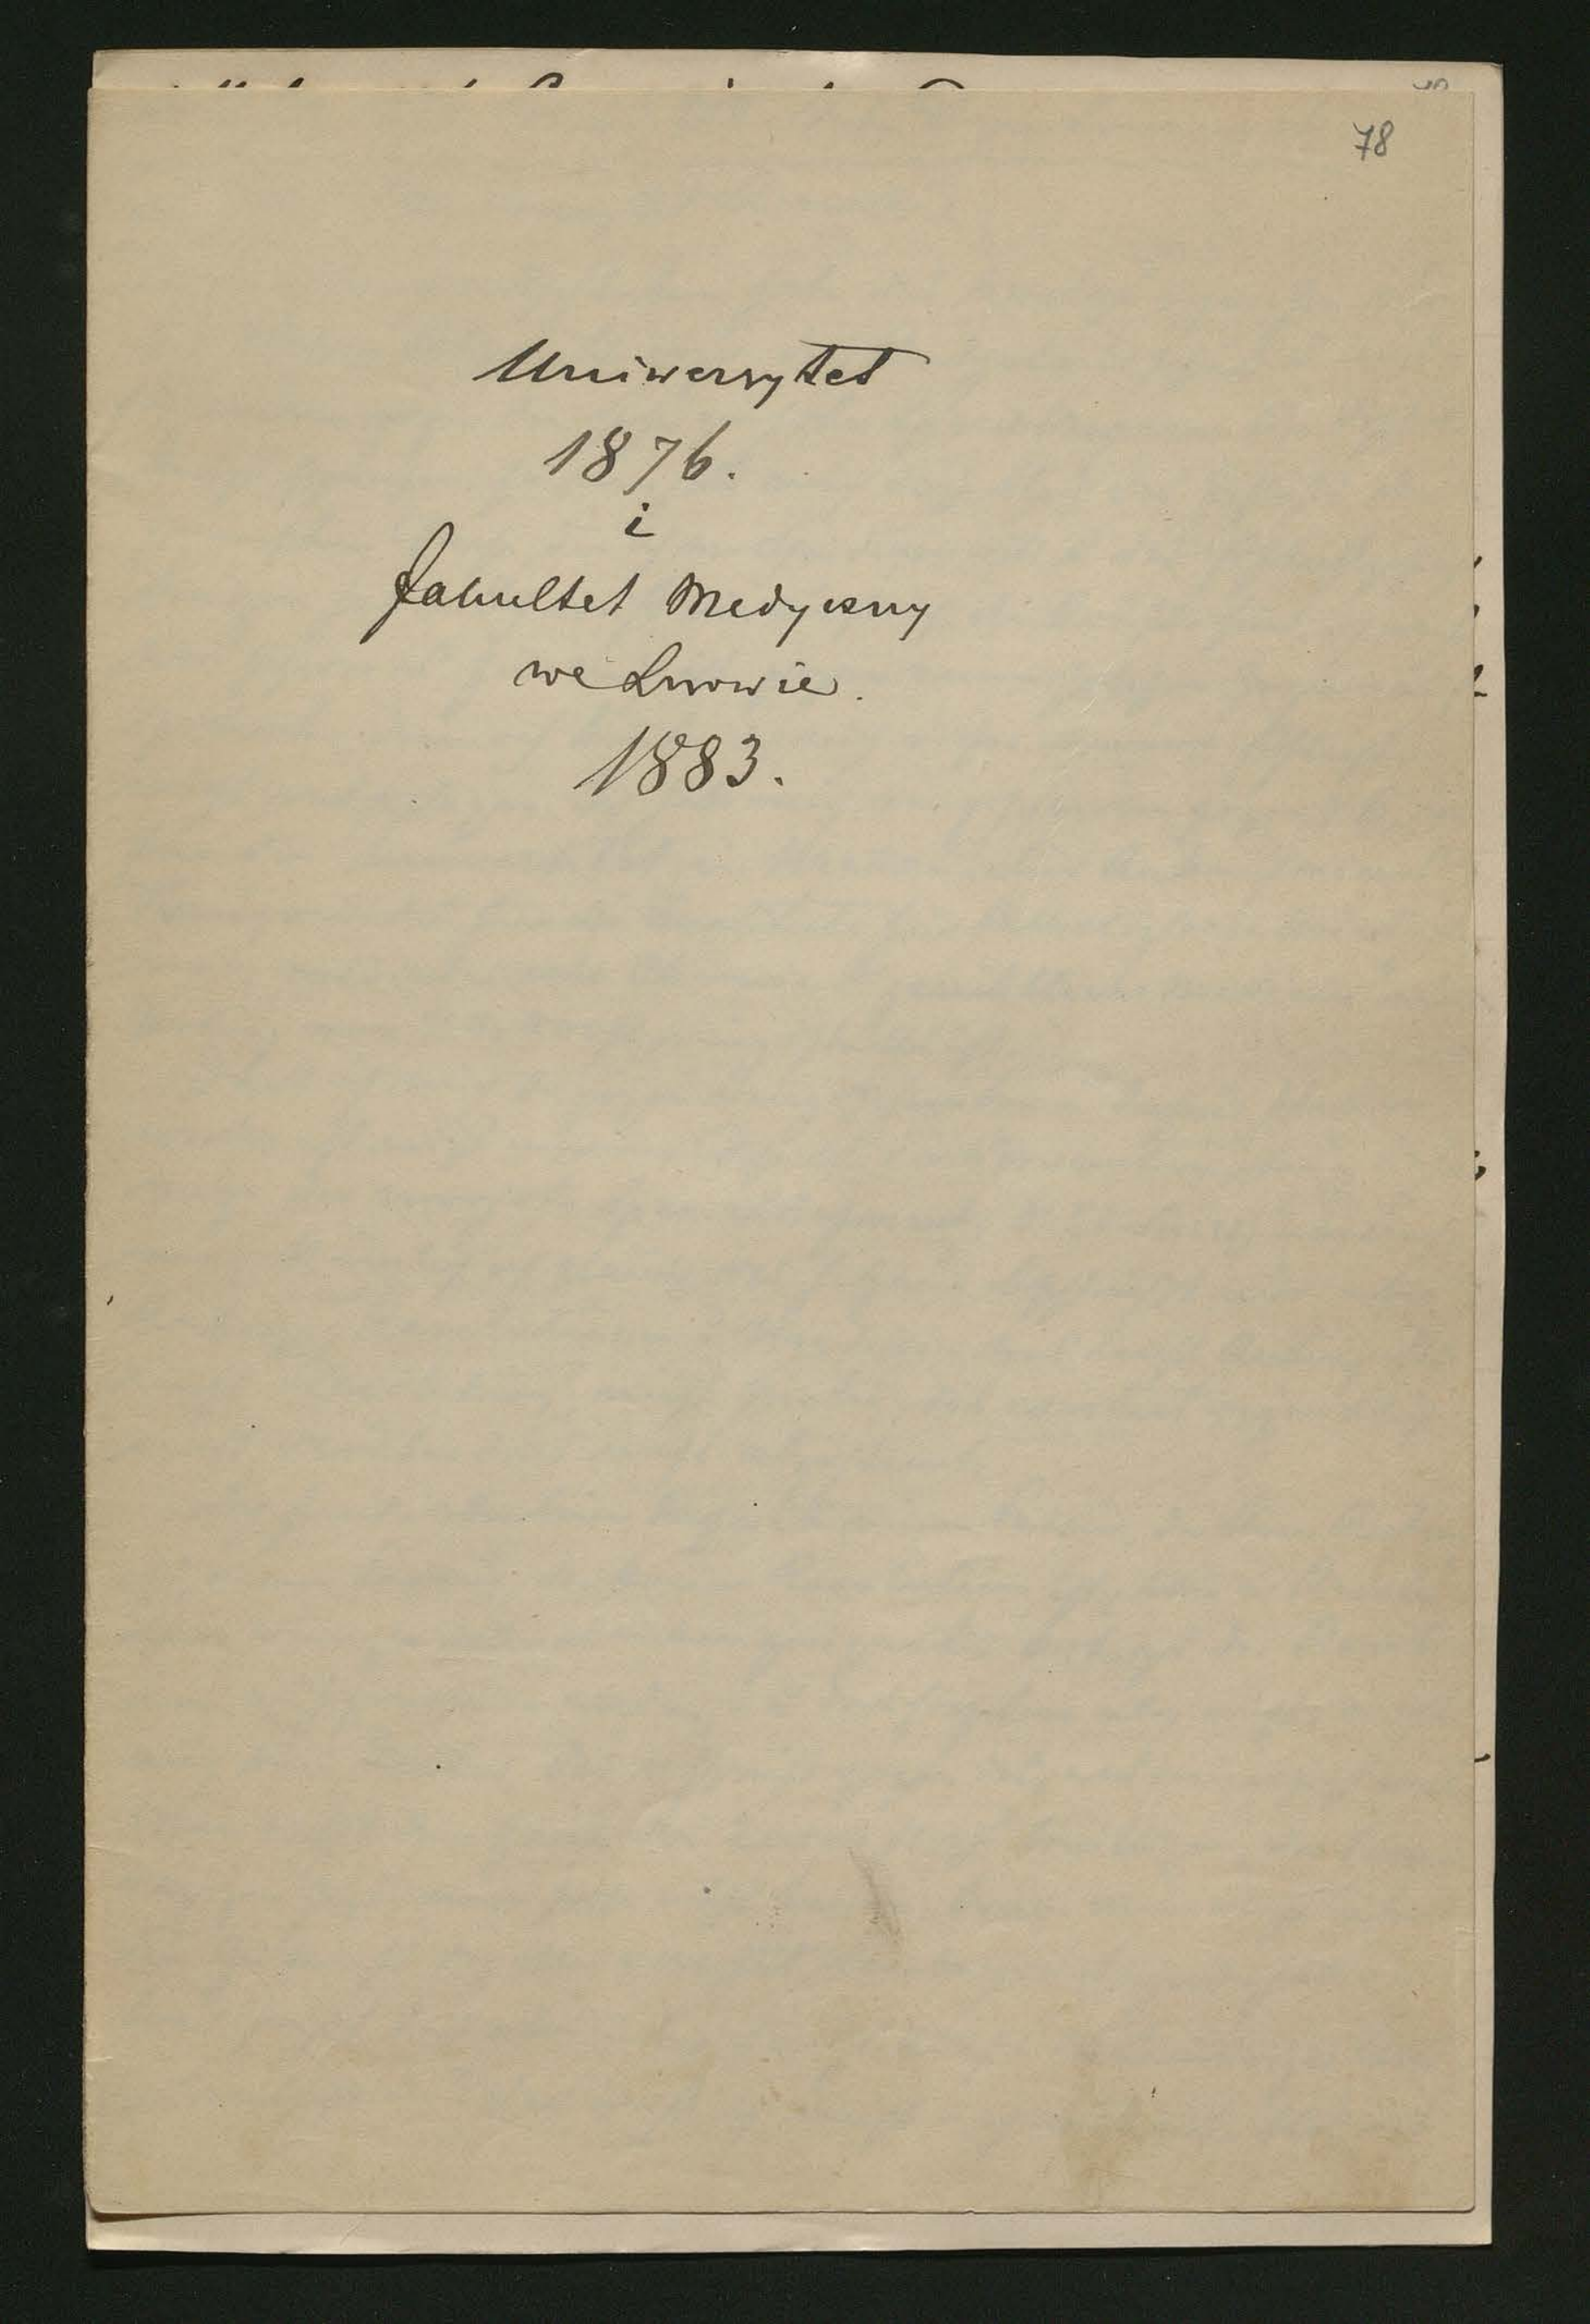 78
Uniwersytet
1876.
i
fakultet Medyczny
we Lwowie.
1883.